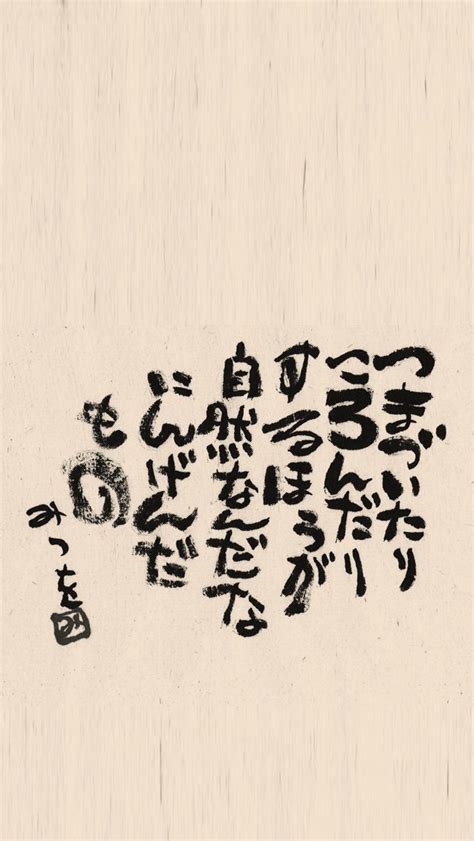 つまづいたり
ころんだり
するほうが
自然なんだな
にんげんだ
もの
みつを